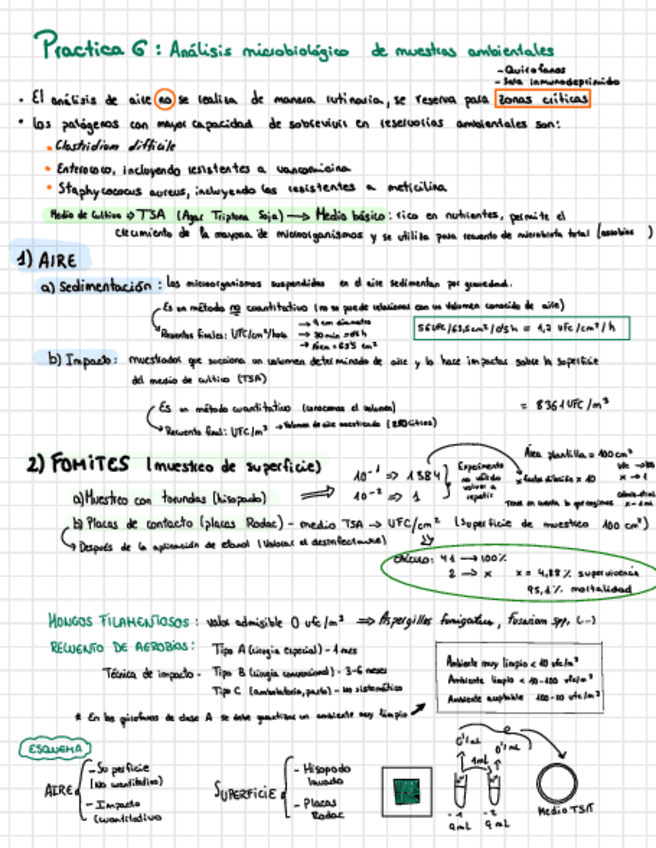 Practica 6: Análisis microbiológico de muestras ambientales
- Quirofanos
- Sala inmunodeprimido
• El análisis de aire no se realiza de manera rutinaria, se reserva para zonas críticas
• Los patógenos con mayor capacidad de sobrevivir en reservorios ambientales son:
• Clostridium difficile
• Enterococo, incluyendo resistentes a vancomicina
• Staphycococus aureus, incluyendo los resistentes a meticilina
Medio de Cultivo → TSA (Agar Triptona Soja) → Medio básico: rico en nutrientes, permite el
crecimiento de la mayoría de microorganismos y se utiliza para recuento de microbiota total (aerobios )
1) AIRE
a) Sedimentación: los microorganismos suspendidos en el aire sedimentan por gravedad.
Es un método no cuantitativo (no se puede relacionar con un volumen conocido de aire)
Recuentos finales: UFC/cm²/hora
→ 9 cm diametro
→ 30 min = 0'5 h
→ Área = 63'5 cm²
56 UFC/63,5cm²/0'5h = 1,7 UFC/cm²/h
b) Impacto: muestrador que succiona un volumen determinado de aire y lo hace impactar sobre la superficie
del medio de cultivo (TSA)
Es un método cuantitativo (conocemos el volumen)
= 8361 UFC/m³
Recuento final: UFC/m³ → Volumen de aire muestreado
2) FOMITES (muestreo de superficie)
Área plantilla = 100 cm²
a) Muestreo con torundas (hisopado)
10⁻¹ => 1384
10⁻² => 1
Experimento no válido volver a repetir
x factor dilución x 10
b) Placas de contacto (placas Rodac) - medio TSA → UFC/cm² (Superficie de muestreo 100 cm²)
Después de la aplicación de etanol (Valorar el desinfectante)
Cálculo: 41 → 100%
2 → x x = 4,88% supervivencia
95,1% mortalidad
HONGOS FILAMENTOSOS: valor admisible 0 ufc/m³ => Aspergillus fumigatus, Fusarium spp. (...)
RECUENTO DE AEROBIOS: Tipo A (cirugia especial) - 1 mes
Técnica de impacto - Tipo B (cirugia convencional) - 3-6 meses
Tipo C (ambulatoria, parto) - No sistemático
Ambiente muy limpio < 10 ufc/m³
Ambiente limpio < 10-100 ufc/m³
Ambiente aceptable 100-200 ufc/m³
* En los quirofanos de clase A se debe garantizar un ambiente muy limpio
ESQUEMA
AIRE
- Superficie
(No cuantitativo)
- Impacto
(cuantitativo
SUPERFICIE
- Hisopado
lavado
- Placas
Rodac
0'1 mL
0'1 mL
1mL
-1
9mL
-2
9mL
Medio TSA